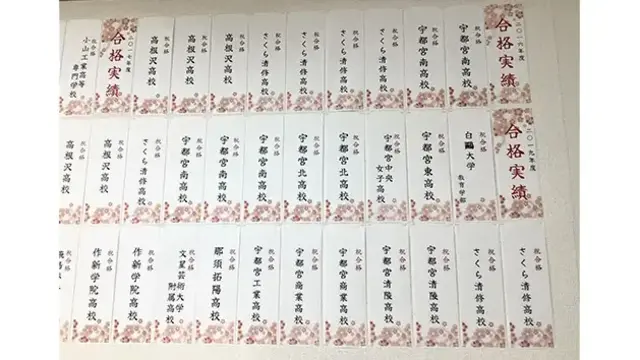 二〇一六年度
合格実績
祝合格
宇都宮南高校
祝合格
宇都宮南高校
祝合格
さくら清修高校
祝合格
さくら清修高校
祝合格
さくら清修高校
祝合格
さくら清修高校
祝合格
高根沢高校
祝合格
高根沢高校
祝合格
高根沢高校
二〇一七年度
合格実績
祝合格
小山工業高等
専門学校
二〇一九年度
合格実績
祝合格
白鷗大学
教育学部
祝合格
宇都宮東高校
祝合格
宇都宮中央
女子高校
祝合格
宇都宮北高校
祝合格
宇都宮北高校
祝合格
宇都宮南高校
祝合格
宇都宮南高校
祝合格
宇都宮南高校
祝合格
さくら清修高校
祝合格
高根沢高校
祝合格
高根沢高校
祝合格
さくら清修高校
祝合格
さくら清修高校
祝合格
宇都宮清陵高校
祝合格
宇都宮清陵高校
祝合格
宇都宮商業高校
祝合格
宇都宮商業高校
祝合格
宇都宮工業高校
祝合格
那須拓陽高校
祝合格
文星芸術大学
附属高校
祝合格
作新学院高校
祝合格
作新学院高校
祝合格